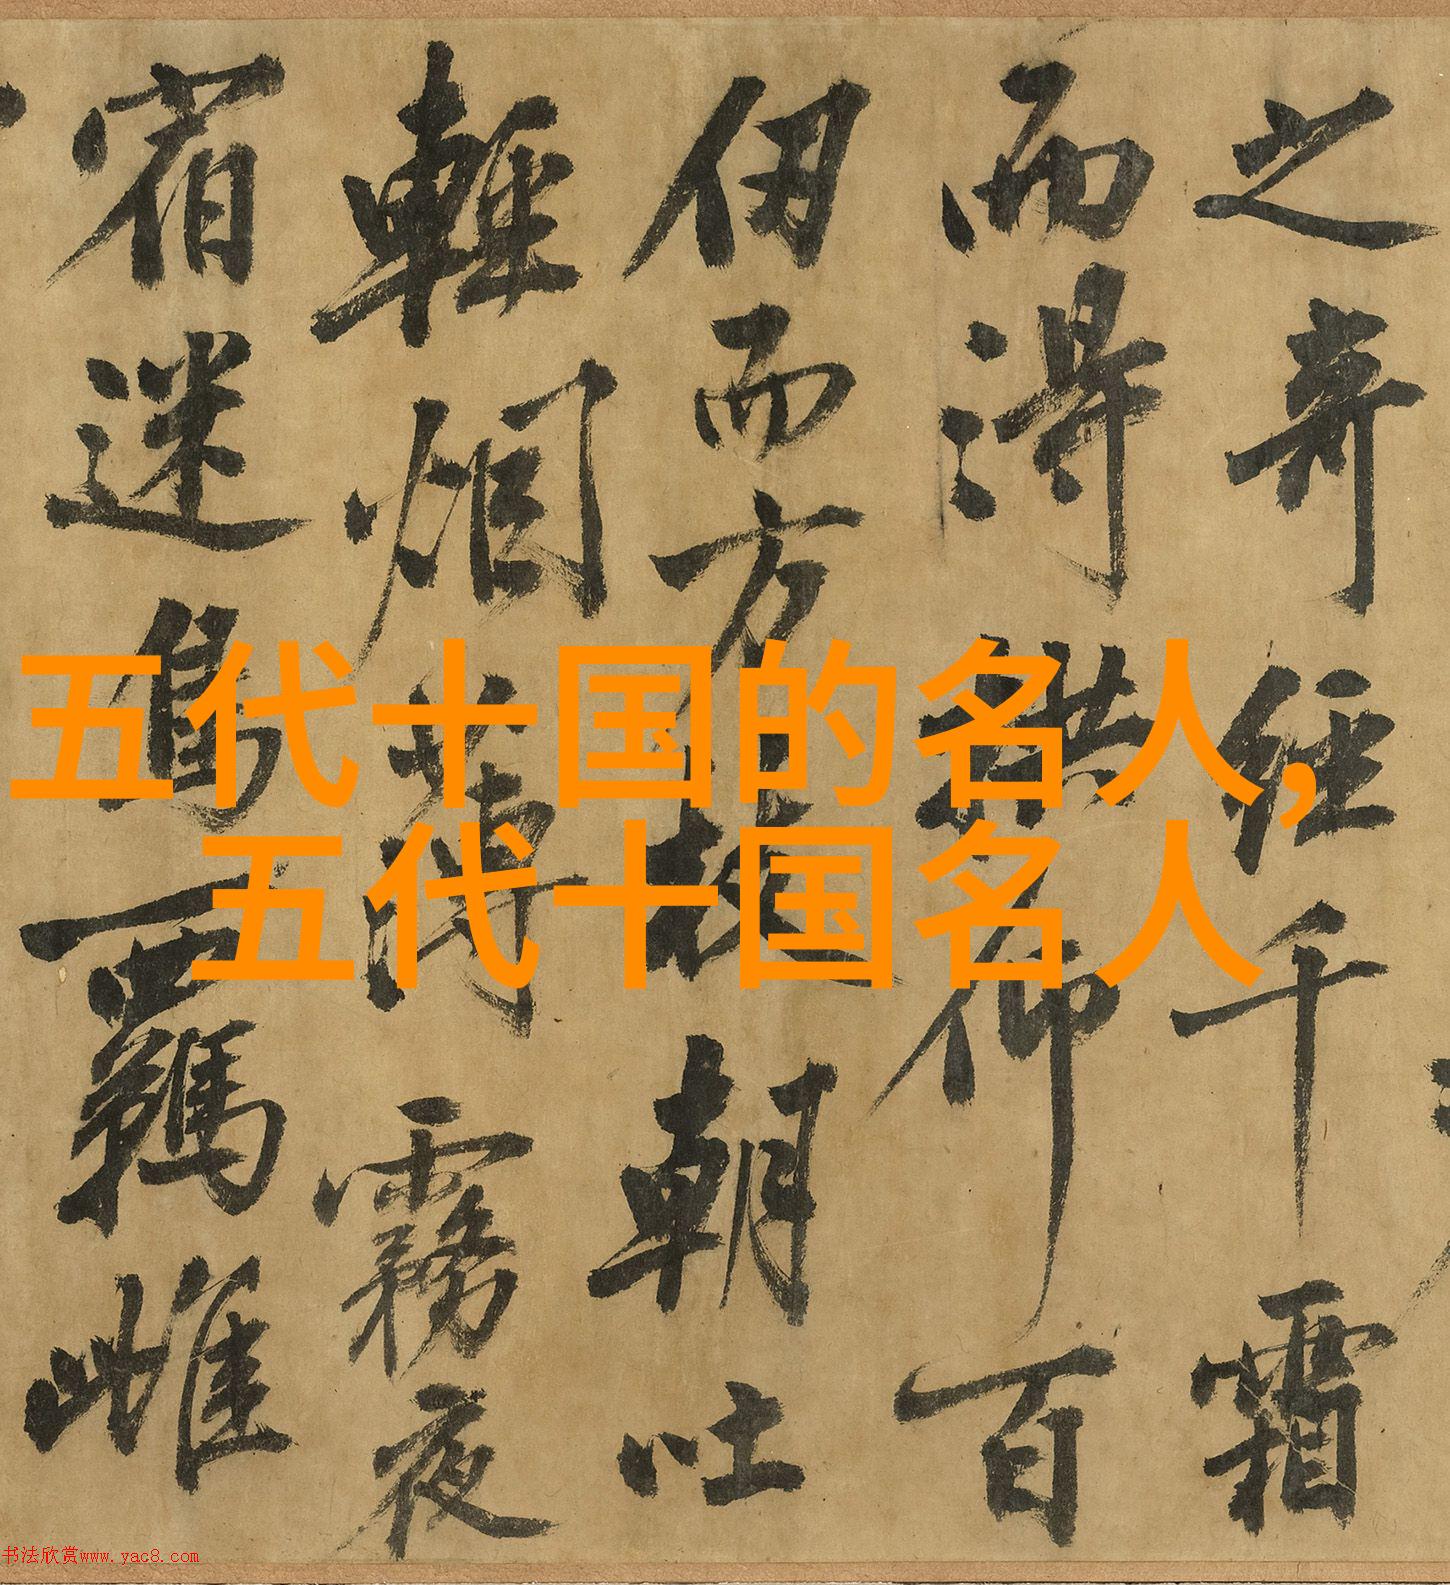 五代十国的名人,
五代十国名人
之奇經千霜
而得拱仰百
仞而方枝朝吐
輕烟薄霧夜
宿迷鳥羈雌
书法欣赏www.yac8.com